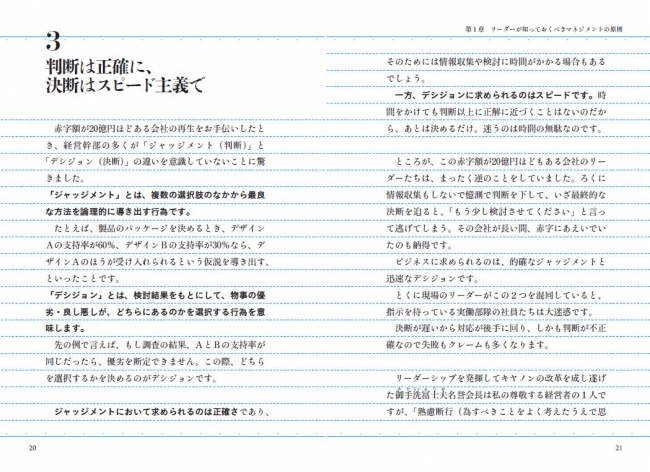 3
判断は正確に、
決断はスピード主義で
赤字額が20億円ほどある会社の再生をお手伝いしたと
き、経営幹部の多くが「ジャッジメント（判断）」と
「デシジョン（決断）」の違いを意識していないことに驚
きました。
「ジャッジメント」とは、複数の選択肢のなかから最良
な方法を論理的に導き出す行為です。
たとえば、製品のパッケージを決めるとき、デザイン
Aの支持率が60%、デザインBの支持率が30%なら、デ
ザインAのほうが受け入れられるという仮説を導き出す、
といったことです。
「デシジョン」とは、検討結果をもとにして、物事の優
劣・良し悪しが、どちらにあるのかを選択する行為を意
味します。
先の例で言えば、もし調査の結果、AとBの支持率が
同じだったら、優劣を断定できません。この際、どちら
を選択するかを決めるのがデシジョンです。
ジャッジメントにおいて求められるのは正確さであり、
20
第1章 リーダーが知っておくべきマネジメントの原則
そのためには情報収集や検討に時間がかかる場合もある
でしょう。
一方、デシジョンに求められるのはスピードです。時
間をかけても判断以上に正解に近づくことはないのだか
ら、あとは決めるだけ。迷うのは時間の無駄なのです。
ところが、この赤字額が20億円ほどもある会社のリー
ダーたちは、まったく逆のことをしていました。ろくに
情報収集もしないで憶測で判断を下して、いざ最終的な
決断を迫ると、「もう少し検討させてください」と言っ
て逃げてしまう。その会社が長い間、赤字にあえいでい
たのも納得です。
ビジネスに求められるのは、的確なジャッジメントと
迅速なデシジョンです。
とくに現場のリーダーがこの2つを混同していると、
指示を待っている実働部隊の社員たちは大迷惑です。
決断が遅いから対応が後手に回り、しかも判断が不正
確なので失敗もクレームも多くなります。
リーダーシップを発揮してキヤノンの改革を成し遂げ
た御手洗冨士夫名誉会長は私の尊敬する経営者の1人で
すが、「熟慮断行（為すべきことをよく考えたうえで思
21